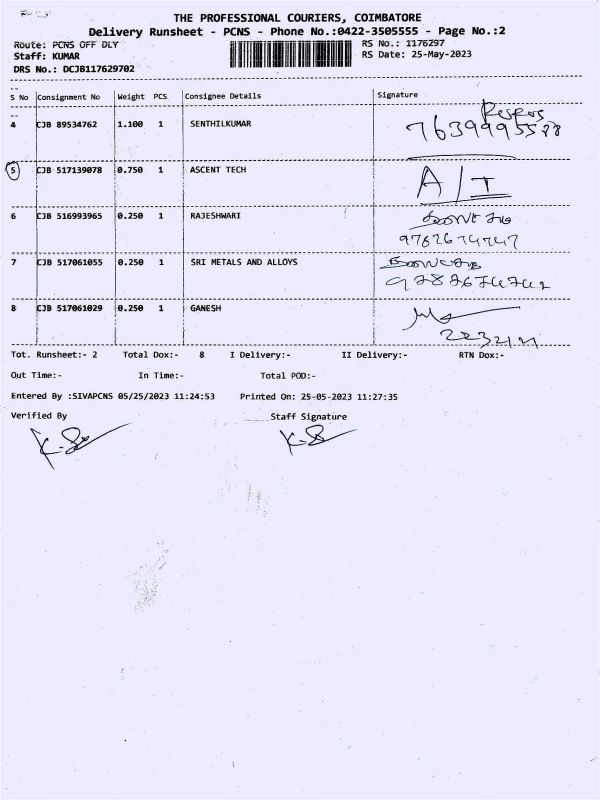 THE PROFESSIONAL COURIERS, COIMBATORE
Delivery Runsheet - PCNS - Phone No.:0422-3505555 - Page No.:2
Route: PCNS OFF DLY RS No.: 1176297
Staff: KUMAR RS Date: 25-May-2023
DRS No.: DCJB117629702
S No Consignment No Weight PCS Consignee Details Signature
4 CJB 89534762 1.100 1 SENTHILKUMAR
5 CJB 517139078 0.750 1 ASCENT TECH A/I
6 CJB 516993965 0.250 1 RAJESHWARI
7 CJB 517061055 0.250 1 SRI METALS AND ALLOYS
8 CJB 517061029 0.250 1 GANESH
Tot. Runsheet:- 2 Total Dox:- 8 I Delivery:- II Delivery:- RTN Dox:-
Out Time:- In Time:- Total POD:-
Entered By :SIVAPCNS 05/25/2023 11:24:53 Printed On: 25-05-2023 11:27:35
Verified By Staff Signature